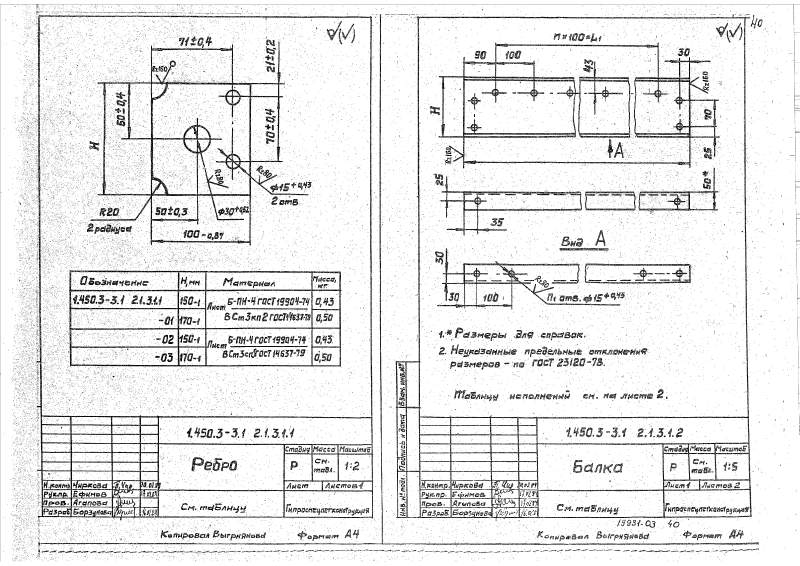 40
71±0,4
Rz160
21±0,2
60±0,4
H
70±0,4
Rz80
Rz80
ф15+0,43
2 отв.
R20
2 радиуса
50±0,3
ф30+0,52
100-0,87
Обозначение H,мм Материал Масса, кг
1.450.3-3.1 2.1.3.1.1 150-1 Лист Б-ПН-4 ГОСТ 19904-74 0,43
-01 170-1 ВСт3кп2 ГОСТ 14637-79 0,50
-02 150-1 Лист Б-ПН-4 ГОСТ 19904-74 0,43
-03 170-1 ГОСТ 14637-79 0,50
1.450.3-3.1 2.1.3.1.1
Ребро
Стадия Масса Масштаб
Р См. табл. 1:2
Лист Листов 1
Н.контр Чиркова
Рук.гр. Ефимов
Пров. Агапова
Разраб. Борзунова
См. таблицу
Гипроспецлегконструкция
Копировал Выгрнянова Формат А4
n×100=L1
90 100 30
43
Rz160
H
70
25
Rz160
А
25
50*
35
Вид А
30
30 100
Rz80
П1 отв. ф15+0,43
1.* Размеры для справок.
2. Неуказанные предельные отклонения
размеров - по ГОСТ 23120-78.
Таблицу исполнений см. на листе 2.
Взам. инв.№
Подпись и дата
Инв.№ подл.
1.450.3-3.1 2.1.3.1.2
Балка
Стадия Масса Масштаб
Р См. табл. 1:5
Лист 1 Листов 2
Н.контр. Чиркова
Рук.гр. Ефимов
Пров. Агапова
Разраб. Борзунова
См. таблицу
Гипроспецлегконструкция
19931-03 40
Копировал Выгрнянова Формат А4